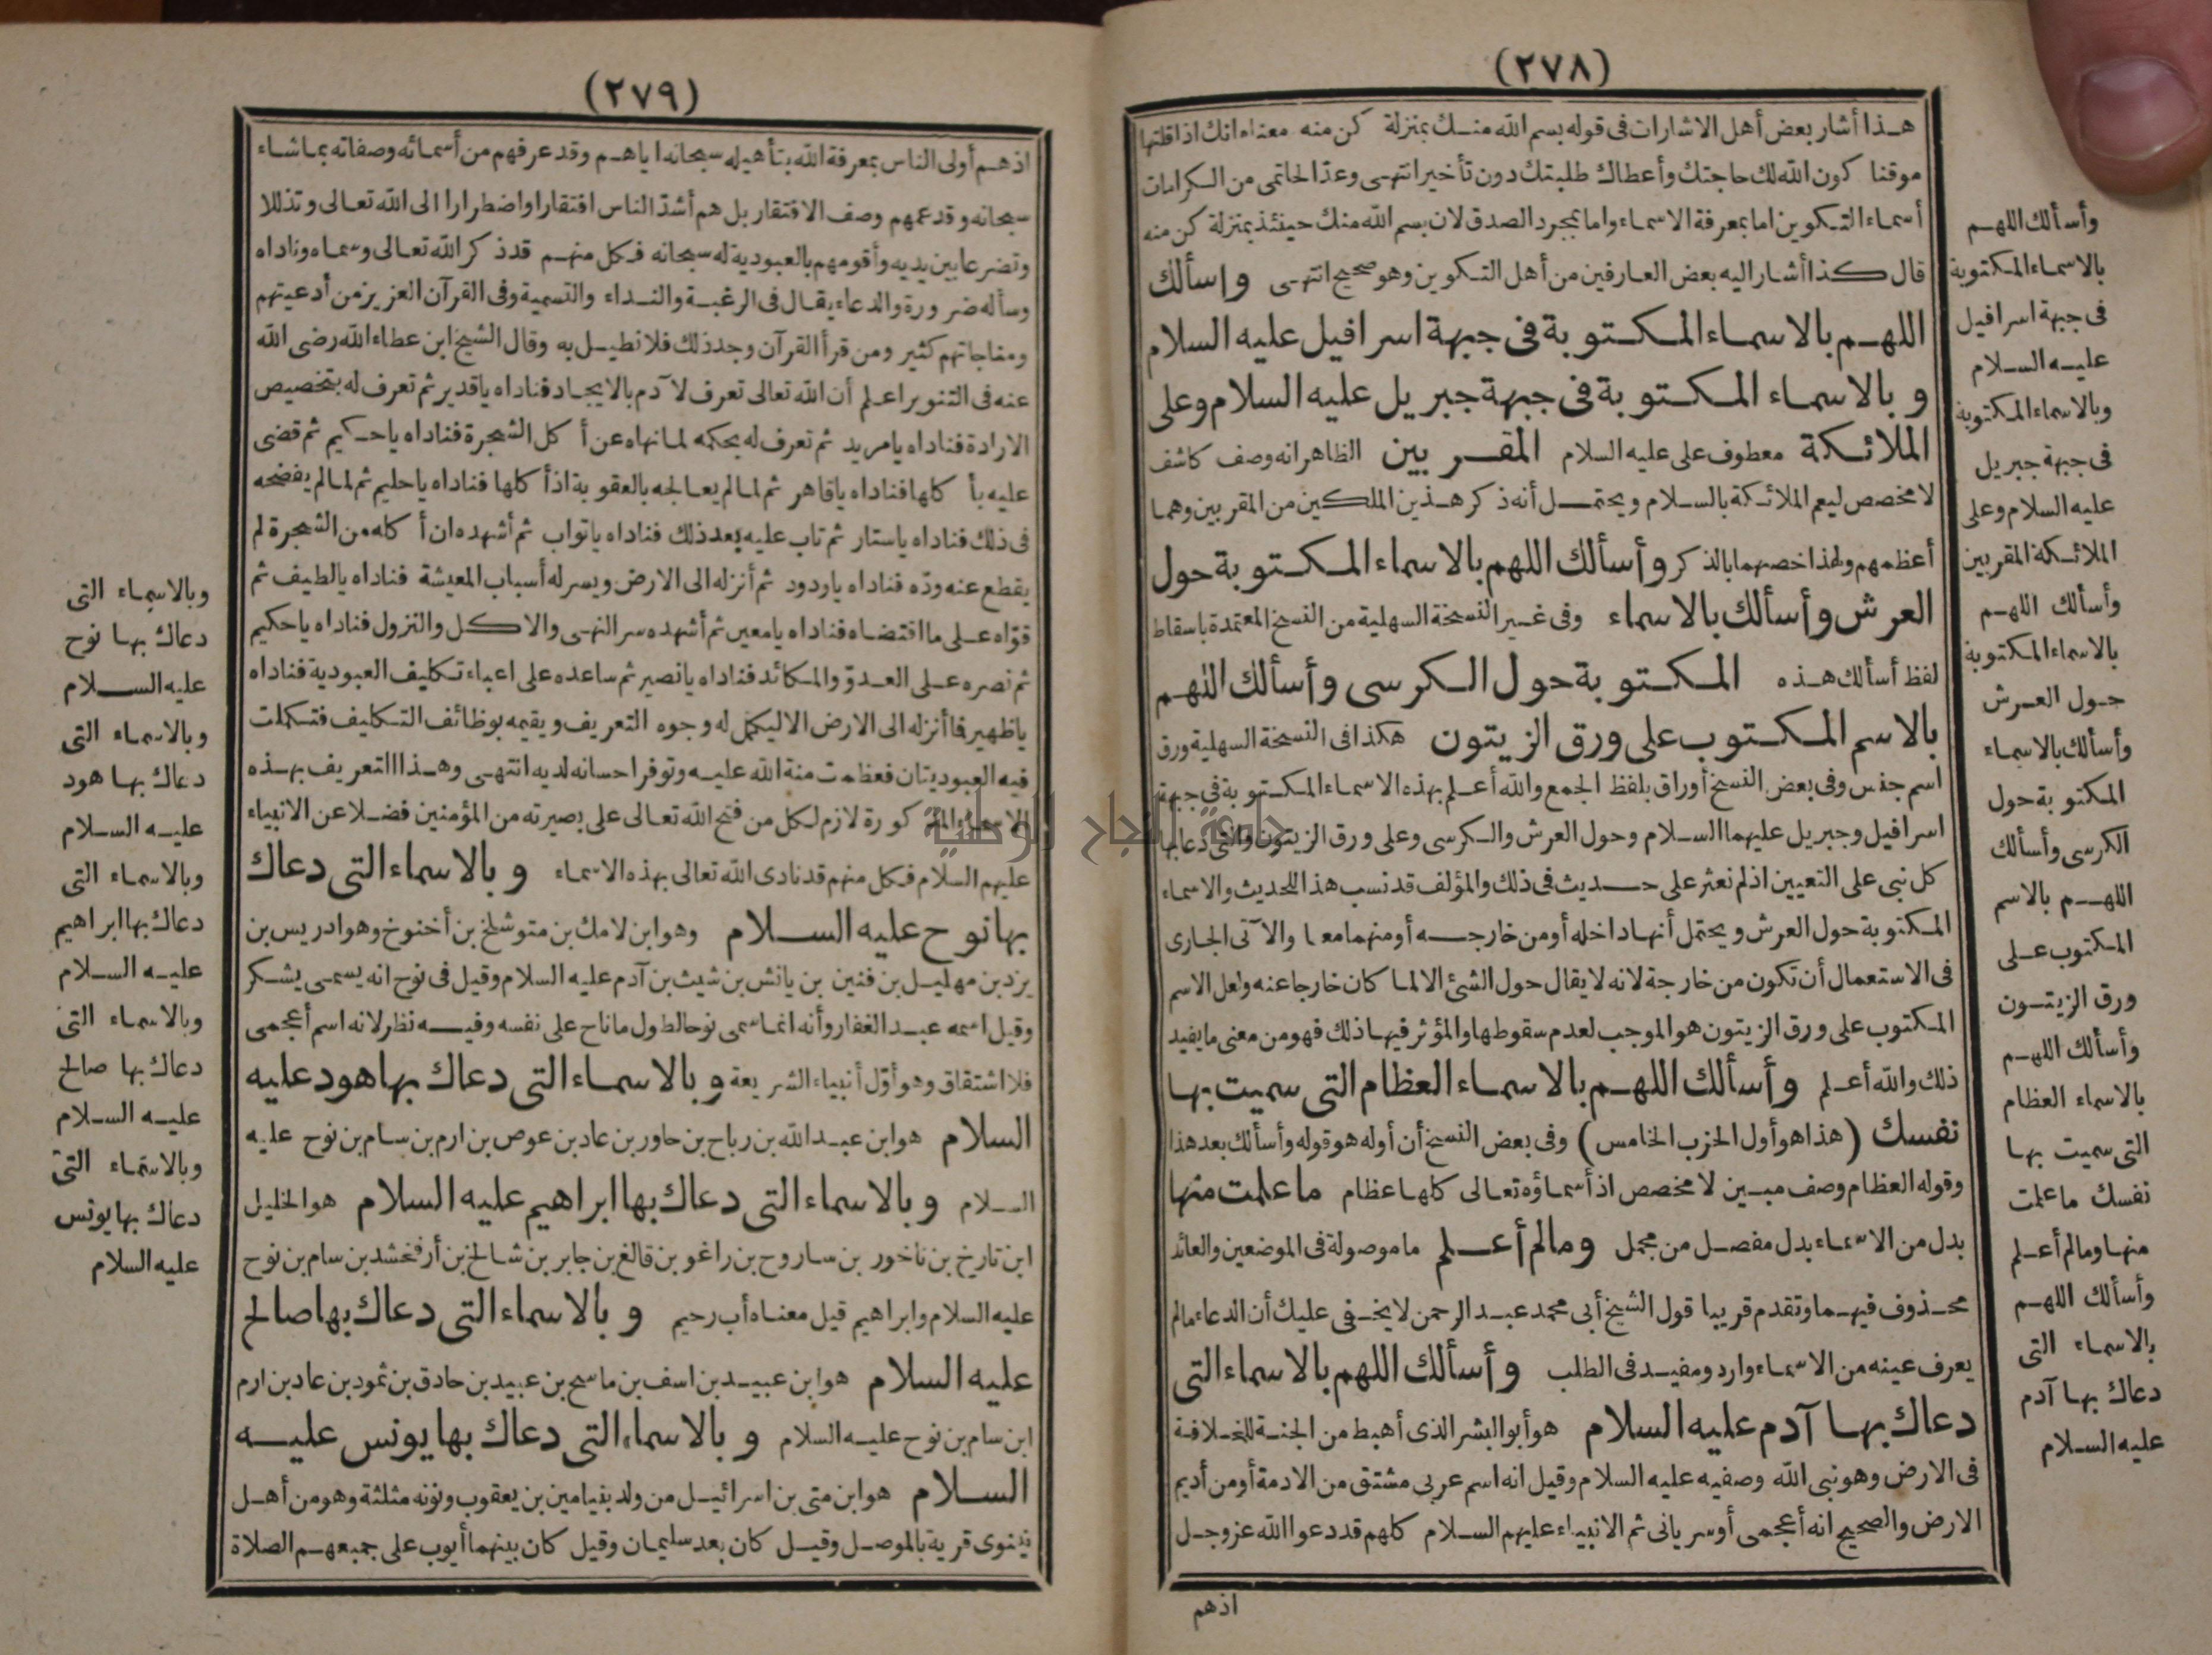 (٢٧٨)
هـذا أشار بعض أهل الاشارات فى قوله بسم الله منـك بمنزلة كن منه معناه انك اذا قلتها
موقنا كون الله لك حاجتك وأعطاك طلبتك دون تأخير انتهى وعدّ الخاتمى من الكرامات
أسماء التكوين اما بمعرفة الاسماء واما بمجرد الصدق لان بسم الله منك حينئذ بمنزلة كن منه
قال كذا أشار اليه بعض العارفين من أهل التكوين وهو صحيح انتهى وأسألك
اللهم بالاسماء المكتوبة فى جبهة اسرافيل عليه السلام
وبالاسماء المكتوبة فى جبهة جبريل عليه السلام وعلى
الملائكة معطوف على عليه السلام المقربين الظاهر انه وصف كاشف
لا مخصص ليعم الملائكة بالسلام ويحتمل أنه ذكر هذين الملكين من المقربين وهما
أعظمهم ولهذا خصهما بالذكر وأسألك اللهم بالاسماء المكتوبة حول
العرش وأسألك بالاسماء وفى غير النسخة السهلية من النسخ المعتمدة باسقاط
لفظ أسألك هذه المكتوبة حول الكرسى وأسألك اللهم
بالاسم المكتوب على ورق الزيتون هكذا فى النسخة السهلية ورق
اسم جنس وفى بعض النسخ أوراق بلفظ الجمع والله أعلم بهذه الاسماء المكتوبة فى جبهة
اسرافيل وجبريل عليهما السلام وحول العرش والكرسى وعلى ورق الزيتون والتى دعا بها
كل نبى على التعيين اذ لم نعثر على حديث فى ذلك والمؤلف قد نسب هذا للحديث والاسماء
المكتوبة حول العرش ويحتمل أنها داخله أو من خارجه أو منهما معا والآتى الجارى
فى الاستعمال أن تكون من خارجة لانه لا يقال حول الشئ الا لما كان خارجا عنه ولعل الاسم
المكتوب على ورق الزيتون هو الموجب لعدم سقوطها والمؤثر فيها ذلك فهو من معنى ما يفيد
ذلك والله أعلم وأسألك اللهم بالاسماء العظام التى سميت بها
نفسك (هذا هو أول الحزب الخامس) وفى بعض النسخ أن أوله هو قوله وأسألك بعد هذا
وقوله العظام وصف مبين لا مخصص اذ أسماؤه تعالى كلها عظام ما علمت منها
بدل من الاسماء بدل مفصل من مجمل وما لم أعلم ما موصولة فى الموضعين والعائد
محذوف فيهما وتقدم قريبا قول الشيخ أبى محمد عبد الرحمن لا يخفى عليك أن الدعاء مالم
يعرف عينه من الاسماء وارد ومفيد فى الطلب وأسألك اللهم بالاسماء التى
دعاك بها آدم عليه السلام هو أبو البشر الذى أهبط من الجنة للخلافة
فى الارض وهو نبى الله وصفيه عليه السلام وقيل انه اسم عربى مشتق من الادمة أو من أديم
الارض والصحيح انه أعجمى أو سريانى ثم الانبياء عليهم السلام كلهم قد دعوا الله عز وجل
اذهم
وأسألك اللهم
بالاسماء المكتوبة
فى جبهة اسرافيل
عليه السلام
وبالاسماء المكتوبة
فى جبهة جبريل
عليه السلام وعلى
الملائكة المقربين
وأسألك اللهم
بالاسماء المكتوبة
حول العرش
وأسألك بالاسماء
المكتوبة حول
الكرسى وأسألك
اللهم بالاسم
المكتوب على
ورق الزيتون
وأسألك اللهم
بالاسماء العظام
التى سميت بها
نفسك ما علمت
منها وما لم أعلم
وأسألك اللهم
بالاسماء التى
دعاك بها آدم
عليه السلام
(٢٧٩)
اذهم أولى الناس بمعرفة الله بتأهيله سبحانه اياهم وقد عرفهم من أسمائه وصفاته بما شاء
سبحانه وقد عمهم وصف الافتقار بل هم أشدّ الناس افتقارا واضطرارا الى الله تعالى وتذللا
وتضرعا بين يديه وأقومهم بالعبودية له سبحانه فكل منهم قد ذكر الله تعالى وسماه وناداه
وسأله ضرورة والدعاء يقال فى الرغبة والنداء والتسمية وفى القرآن العزيز من أدعيتهم
ومناجاتهم كثير ومن قرأ القرآن وجد ذلك فلا نطيل به وقال الشيخ ابن عطاء الله رضى الله
عنه فى التنوير اعلم أن الله تعالى تعرف لآدم بالايجاد فناداه يا قدير ثم تعرف له بتخصيص
الارادة فناداه يا مريد ثم تعرف له بحكمه لما نهاه عن أكل الشجرة فناداه يا حكيم ثم قضى
عليه بأكلها فناداه يا قاهر ثم لما لم يعالجه بالعقوبة اذ أكلها فناداه يا حليم ثم لما لم يفضحه
فى ذلك فناداه يا ستار ثم تاب عليه بعد ذلك فناداه يا تواب ثم أشهده ان أكله من الشجرة لم
يقطع عنه ودّه فناداه يا ودود ثم أنزله الى الارض ويسر له أسباب المعيشة فناداه يا لطيف ثم
قوّاه على ما اقتضاه فناداه يا معين ثم أشهده سر النهى والاكل والنزول فناداه يا حكيم
ثم نصره على العدوّ والمكائد فناداه يا نصير ثم ساعده على اعباء تكليف العبودية فناداه
يا ظهير فما أنزله الى الارض الا ليكمل له وجوه التعريف ويقيمه بوظائف التكليف فتكملت
فيه العبوديتان فعظمت منة الله عليه وتوفر احسانه لديه انتهى وهذا التعريف بهذه
الاسماء المذكورة لازم لكل من فتح الله تعالى على بصيرته من المؤمنين فضلا عن الانبياء
عليهم السلام فكل منهم قد نادى الله تعالى بهذه الاسماء وبالاسماء التى دعاك
بها نوح عليه السلام وهو ابن لامك بن متوشلخ بن أخنوخ وهو ادريس بن
يرد بن مهليل بن قنين بن يانش بن شيث بن آدم عليه السلام وقيل فى نوح انه يسمى يشكر
وقيل اسمه عبد الغفار وأنه انما سمى نوحا لطول ما ناح على نفسه وفيه نظر لانه اسم أعجمى
فلا اشتقاق وهو أوّل أنبياء الشريعة وبالاسماء التى دعاك بها هود عليه
السلام هو ابن عبد الله بن رباح بن حاور بن عاد بن عوص بن ارم بن سام بن نوح عليه
السلام وبالاسماء التى دعاك بها ابراهيم عليه السلام هو الخليل
ابن تاريخ بن ناخور بن ساروح بن راغو بن قالغ بن جابر بن شالخ بن أرفخشد بن سام بن نوح
عليه السلام وابراهيم قيل معناه أب رحيم وبالاسماء التى دعاك بها صالح
عليه السلام هو ابن عبيد بن اسف بن ماسح بن عبيد بن حادق بن ثمود بن عاد بن ارم
ابن سام بن نوح عليه السلام وبالاسماء التى دعاك بها يونس عليه
السلام هو ابن متى بن اسرائيل من ولد بنيامين بن يعقوب ونونه مثلثة وهو من أهل
نينوى قرية بالموصل وقيل كان بعد سليمان وقيل كان بينهما أيوب على جميعهم الصلاة
وبالاسماء التى
دعاك بها نوح
عليه السلام
وبالاسماء التى
دعاك بها هود
عليه السلام
وبالاسماء التى
دعاك بها ابراهيم
عليه السلام
وبالاسماء التى
دعاك بها صالح
عليه السلام
وبالاسماء التى
دعاك بها يونس
عليه السلام
جامعة النجاح الوطنية